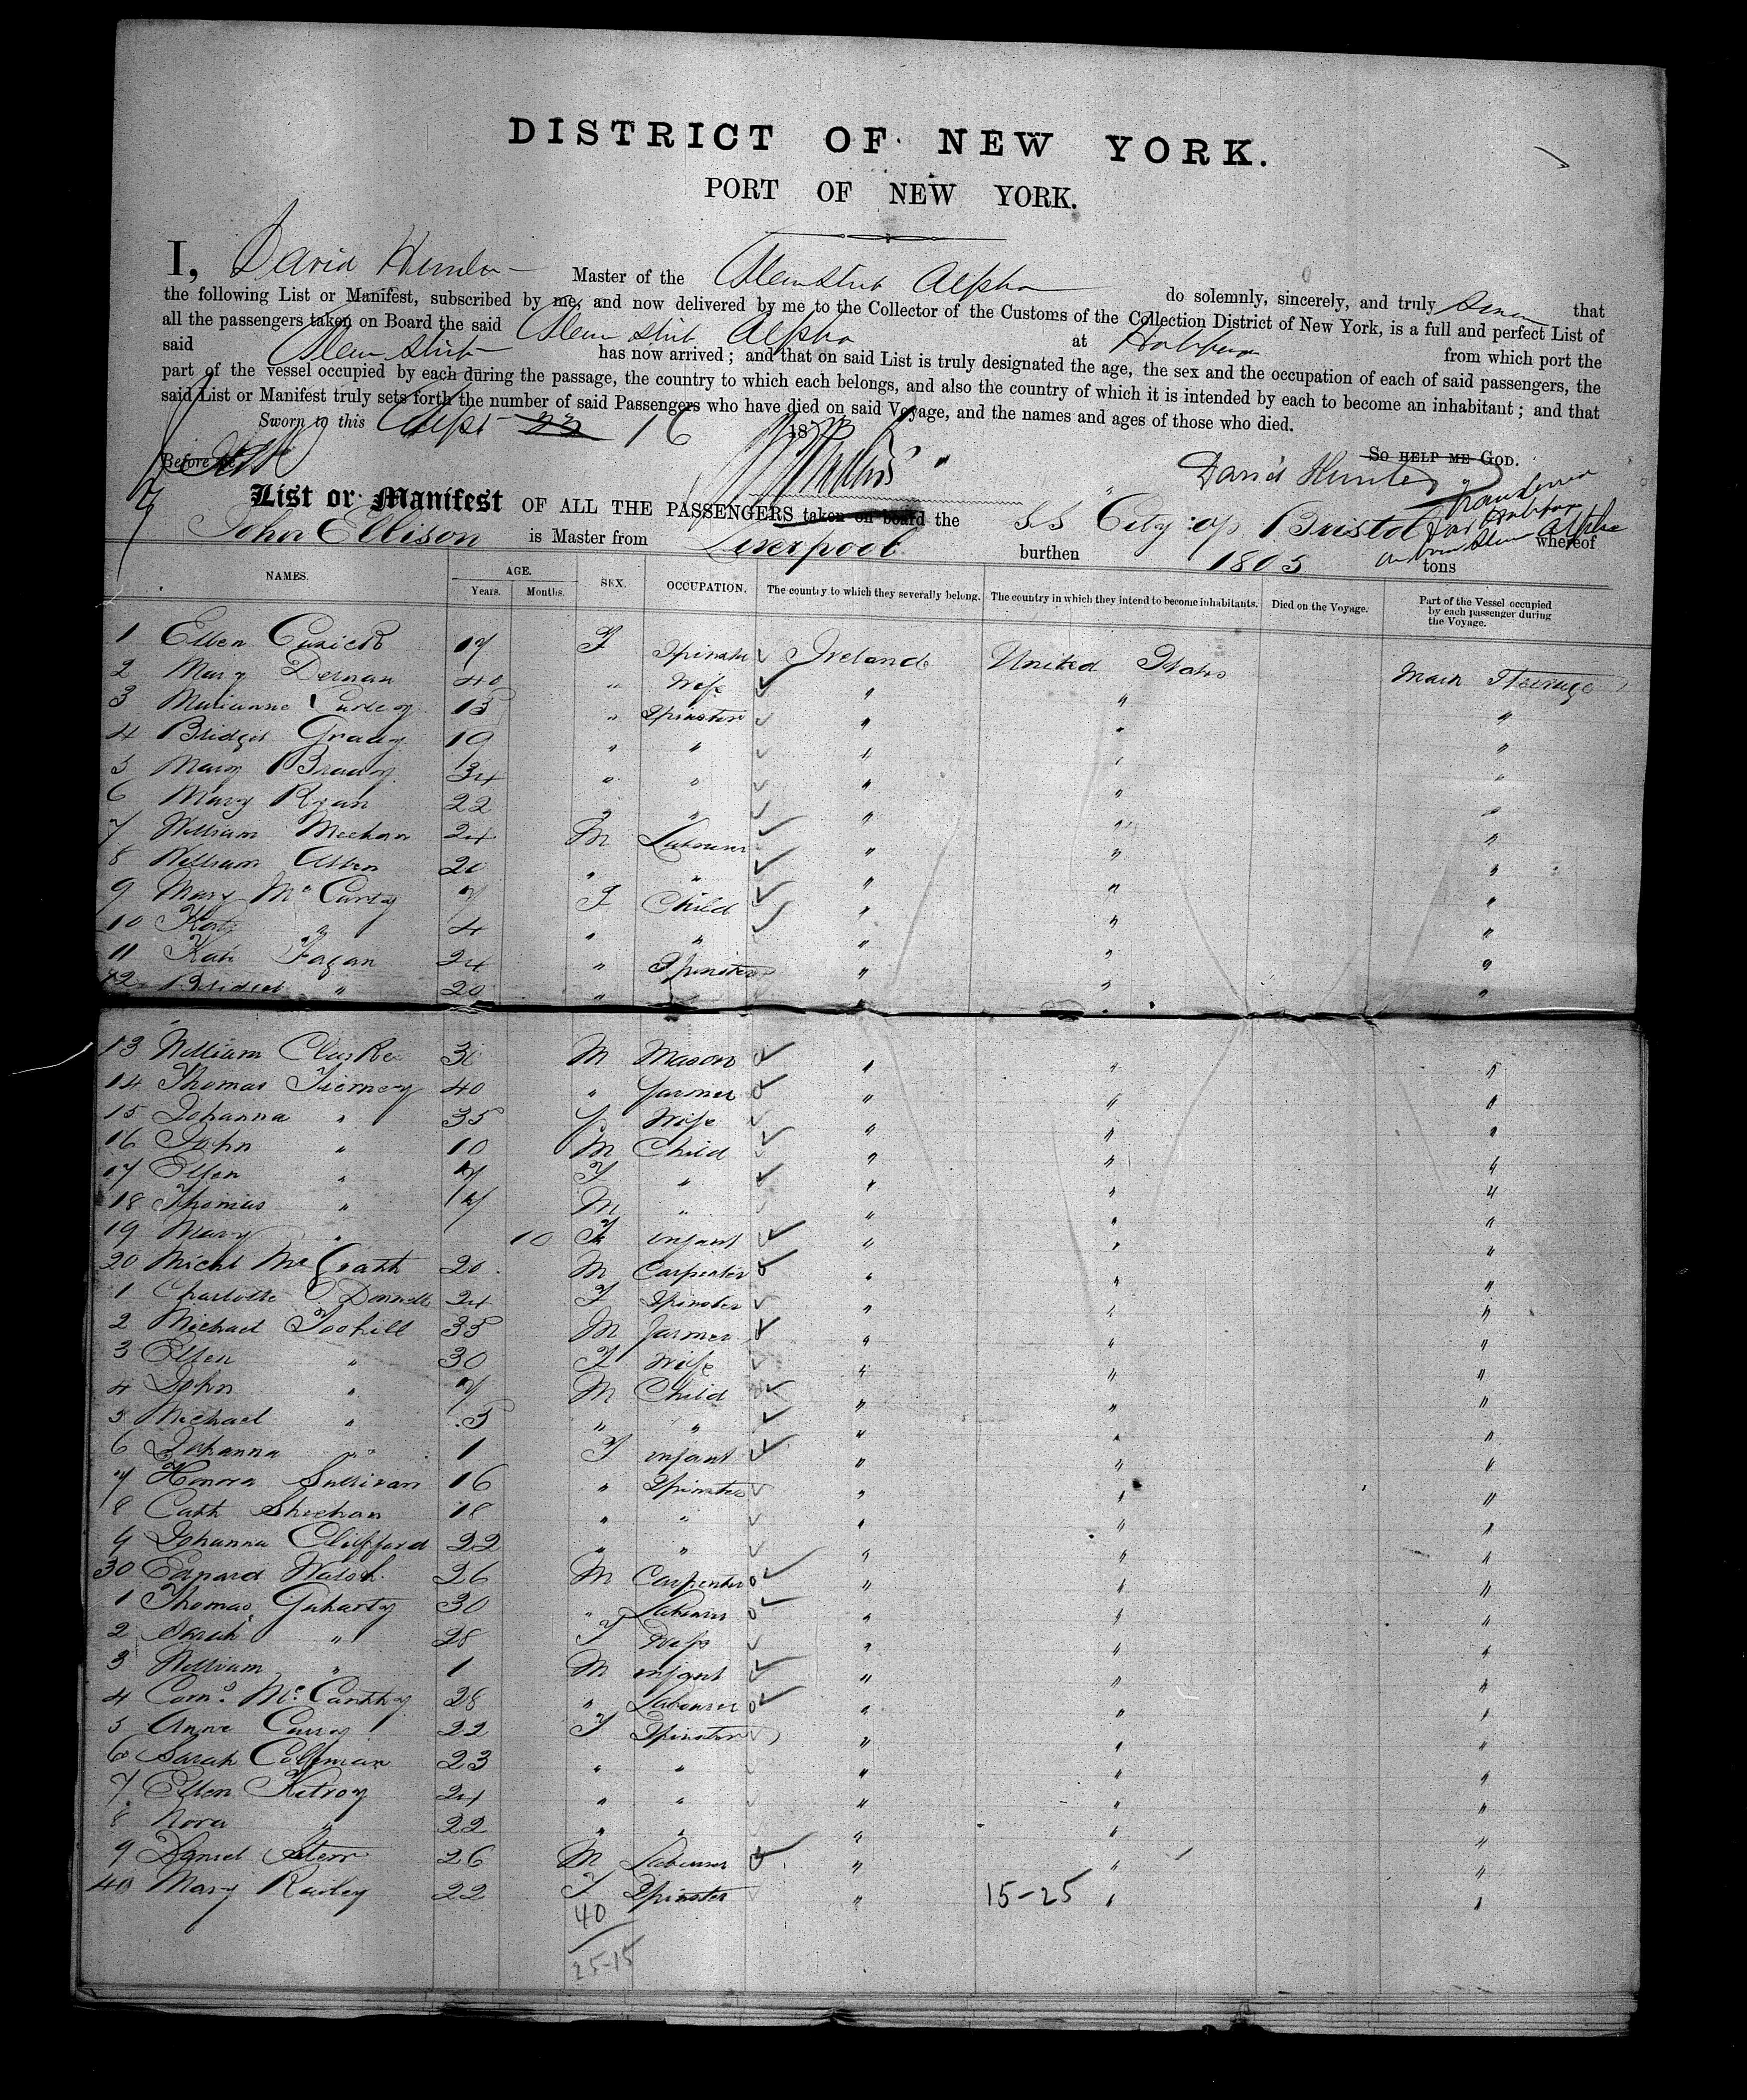 DISTRICT OF NEW YORK.
PORT OF NEW YORK.
I, David Hunter Master of the Steam Ship Alpha do solemnly, sincerely, and truly swear that
the following List or Manifest, subscribed by me, and now delivered by me to the Collector of the Customs of the Collection District of New York, is a full and perfect List of
all the passengers taken on Board the said Steam Ship Alpha at from which port the
said Steam Ship has now arrived; and that on said List is truly designated the age, the sex and the occupation of each of said passengers, the
part of the vessel occupied by each during the passage, the country to which each belongs, and also the country of which it is intended by each to become an inhabitant; and that
said List or Manifest truly sets forth the number of said Passengers who have died on said Voyage, and the names and ages of those who died.
Sworn to this Sept 16 18
So help me God.
Before me David Hunter
List or Manifest OF ALL THE PASSENGERS taken on board the S.S City of Bristol whereof
John Ellison is Master from Liverpool burthen 1805 tons
NAMES. AGE. Years. Months. SEX. OCCUPATION. The country to which they severally belong. The country in which they intend to become inhabitants. Died on the Voyage. Part of the Vessel occupied by each passenger during the Voyage.
1 Ellen Cusick 17 F Spinster Ireland United States Main Steerage
2 Mary 40 " Wife " " "
3 15 " Spinster " " "
4 Bridget 19 " " " " "
5 Mary 34 " " " " "
6 Mary Ryan 22 " " " " "
7 William Meehan 24 M Labourer " " "
8 William Allen 20 " " " " "
9 Mary McCarty 7 F Child " " "
10 Kate " 4 " " " " "
11 Kate Fagan 24 " Spinster " " "
12 Bridget " 20 " " " " "
13 William 30 M Mason " " "
14 Thomas Tierney 40 " farmer " " "
15 Johanna " 35 F Wife " " "
16 John " 10 M Child " " "
17 Ellen " 7 F " " " "
18 Thomas " M " " " "
19 Mary " 10 F infant " " "
20 Michl McGrath 20 M Carpenter " " "
1 Charlotte O'Donnell 24 F Spinster " " "
2 Michael Toohill 35 M farmer " " "
3 Ellen " 30 F Wife " " "
4 John " 7 M Child " " "
5 Michael " 5 " " " " "
6 Johanna " 1 F infant " " "
7 Honora Sullivan 16 " Spinster " " "
8 Cath Sheehan 18 " " " " "
9 Johanna Clifford 22 " " " " "
30 Edward Walsh 26 M Carpenter " " "
1 Thomas 30 " Labourer " " "
2 Sarah " 28 F Wife " " "
3 William " 1 M infant " " "
4 Corns McCarthy 28 " Labourer " " "
5 Anne 22 F Spinster " " "
6 Sarah Collman 23 " " " " "
7 Ellen 24 " " " " "
8 Nora " 22 " " " " "
9 Daniel 26 M Labourer " " "
40 Mary 22 F Spinster " 15-25 " "
40
25-15